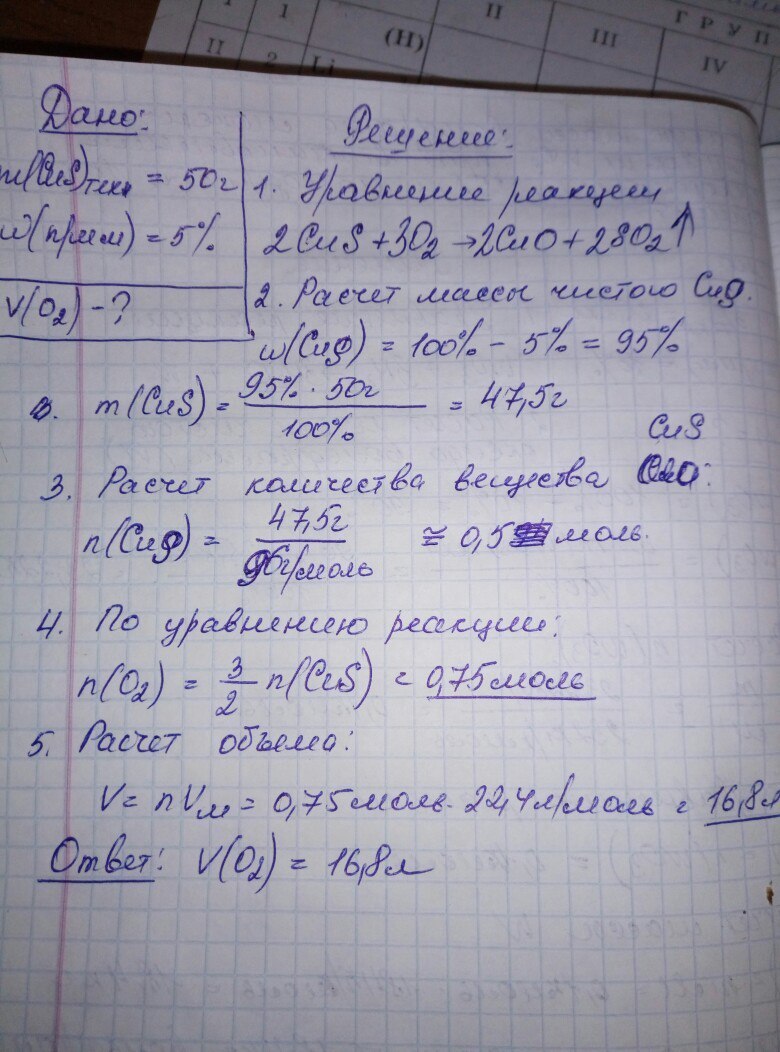 I 1 II III ГРУП IV
(H)
II 2 Li
Дано:
m(CuS)техн = 50г
w(прим) = 5%
V(O₂) - ?
Решение:
1. Уравнение реакции
2CuS + 3O₂ → 2CuO + 2SO₂↑
2. Расчет массы чистого CuS.
w(CuS) = 100% - 5% = 95%
m(CuS) = 95% · 50г / 100% = 47,5г
CuS
3. Расчет количества вещества :
n(CuS) = 47,5г / 96г/моль ≅ 0,5 моль.
4. По уравнению реакции:
n(O₂) = 3/2 n(CuS) = 0,75моль
5. Расчет объема:
V = nVм = 0,75моль · 22,4л/моль = 16,8л
Ответ: V(O₂) = 16,8л